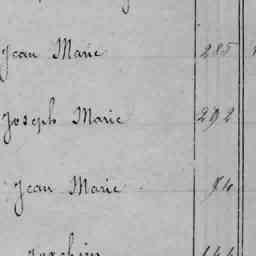 Jean Marie 285
Joseph Marie 292
Jean Marie 84
Joachim 144